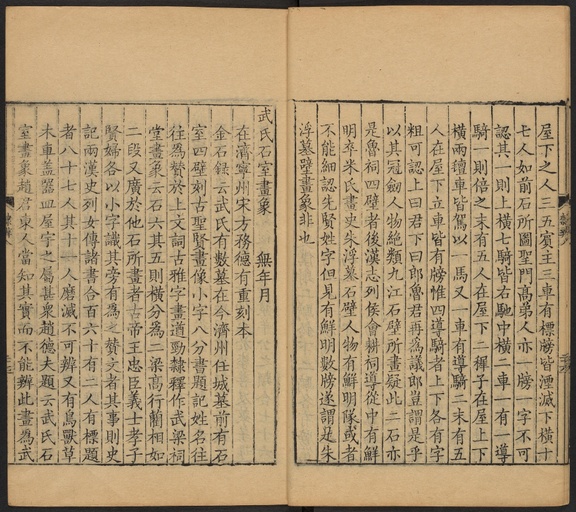 屋下之人三五賓主三車有標牓皆湮滅下橫十
七人如前石所圖聖門高弟人亦一牓一字不可
認其一則上橫七騎皆右馳中橫二車一有一導
騎一則倍之末有五人在屋下二稺子在屋上下
橫兩種車皆駕以一馬又一車有導騎二末有五
人在屋下立車皆有牓惟四導騎者上下各有字
粗可認上曰君下曰郎魯君再為議郎豈謂是乎
以其冠劒人物絕類九江石壁所畫疑此二石亦
是魯祠四壁者後漢志列侯會耕祠導從中有鮮
明卒米氏畫史朱浮墓石壁人物有鮮明隊或者
不能細認先賢姓字但見有鮮明數牓遂謂是朱
浮墓壁畫象非也
武氏石室畫象 無年月
在濟寧州宋方務德有重刻本
金石録云武氏有數墓在今濟州任城墓前有石
室四壁刻古聖賢畫像小字八分書題記姓名往
往為贊於上文詞古雅字畫遒勁隷釋作武梁祠
堂畫象云石六其五則橫分為二梁高行藺相如
二段又廣於他石所畫者古帝王忠臣義士孝子
賢婦各以小字識其旁有為之贊文者其事則史
記兩漢史列女傳諸書合百六十有二人有標題
者八十七人其十一人磨滅不可辨又有鳥獸草
木車蓋器皿屋宇之屬甚衆趙德夫題云武氏石
室畫象趙君東人當知其實而不能辨此畫為武